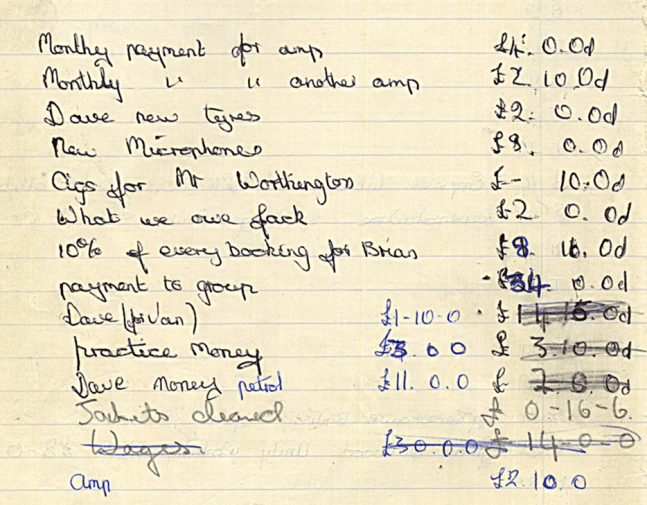 Monthy payment for amp £4. 0. 0d
Monthly " " another amp £2 10. 0d
Dave new tyres £2. 0. 0d
New Microphones £8. 0. 0d
Cigs for Mr Worthington £- 10. 0d
What we owe Jack £2 0. 0d
10% of every booking for Brian £8. 16. 0d
payment to group 0. 0d
Dave (for Van) £1-10-0 £
practice money £3. 0 0 £ 3. 10. 0d
Dave money petrol £11. 0. 0 £
Jackets cleaned £ 0-16-6.
Wages £30. 0. 0 £ 14-0-0
Amp £2. 10. 0